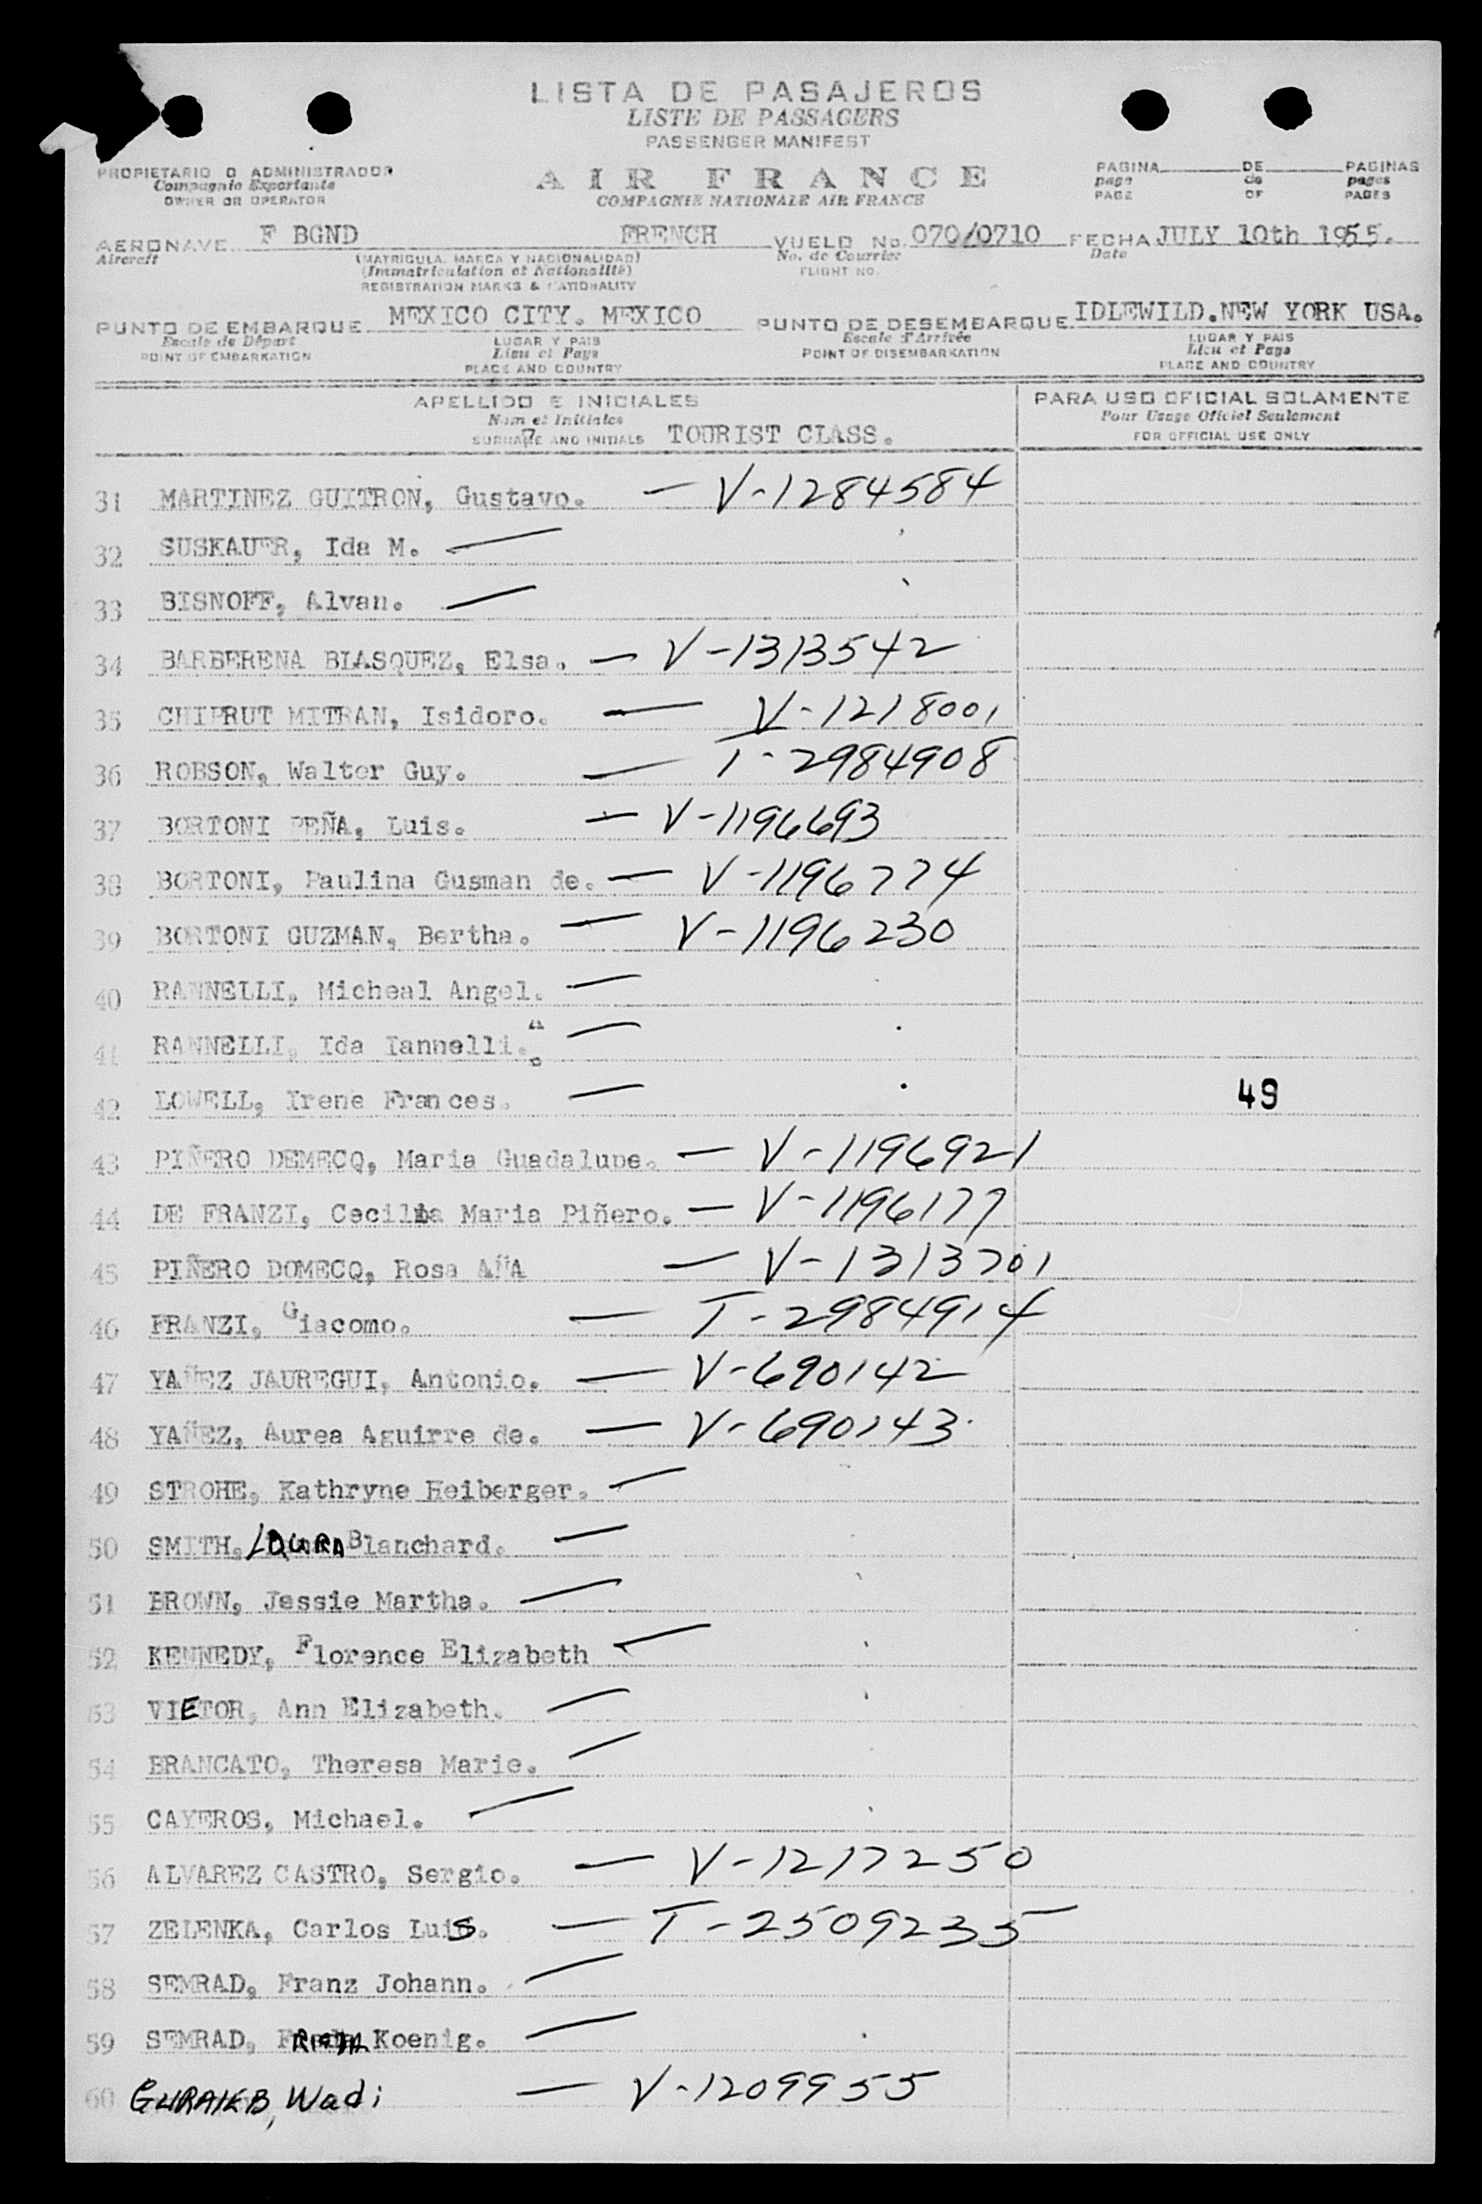 LISTA DE PASAJEROS
LISTE DE PASSAGERS
PASSENGER MANIFEST
PROPIETARIO O ADMINISTRADOR
Compagnie Exportante
OWNER OR OPERATOR
AIR FRANCE
COMPAGNIE NATIONALE AIR FRANCE
PAGINA DE PAGINAS
page de pages
PAGE OF PAGES
AERONAVE F BGND FRENCH VUELO No. 070/0710 FECHA JULY 10th 1955.
Aircraft (MATRICULA, MARCA Y NACIONALIDAD) No. de Courrier Date
(Immatriculation et Nationalité) FLIGHT NO.
REGISTRATION MARKS & NATIONALITY
PUNTO DE EMBARQUE MEXICO CITY. MEXICO PUNTO DE DESEMBARQUE IDLEWILD.NEW YORK USA.
Escale de Départ LUGAR Y PAIS Escale d'Arrivée LUGAR Y PAIS
POINT OF EMBARKATION Lieu et Pays POINT OF DISEMBARKATION Lieu et Pays
PLACE AND COUNTRY PLACE AND COUNTRY
APELLIDO E INICIALES PARA USO OFICIAL SOLAMENTE
Nom et Initiales Pour Usage Officiel Seulement
SURNAME AND INITIALS TOURIST CLASS. FOR OFFICIAL USE ONLY
31 MARTINEZ GUITRON, Gustavo. — V-1284584
32 SUSKAUER, Ida M. —
33 BISNOFF, Alvan. —
34 BARBERENA BLASQUEZ, Elsa. — V-1313542
35 CHIPRUT MITRAN, Isidoro. — V-1218001
36 ROBSON, Walter Guy. — T-2984908
37 BORTONI PEÑA, Luis. — V-1196693
38 BORTONI, Paulina Gusman de. — V-1196774
39 BORTONI GUZMAN, Bertha. — V-1196230
40 RANNELLI, Micheal Angel. —
41 RANNELLI, Ida Iannelli. —
42 LOWELL, Irene Frances. — 49
43 PIÑERO DEMECQ, Maria Guadalupe. — V-1196921
44 DE FRANZI, Cecilia Maria Piñero. — V-1196177
45 PIÑERO DOMECQ, Rosa AÑA — V-1313701
46 FRANZI, Giacomo. — T-2984914
47 YAÑEZ JAUREGUI, Antonio. — V-690142
48 YAÑEZ, Aurea Aguirre de. — V-690143
49 STROHE, Kathryne Heiberger. —
50 SMITH, LAURA Blanchard. —
51 BROWN, Jessie Martha. —
52 KENNEDY, Florence Elizabeth —
53 VIETOR, Ann Elizabeth. —
54 BRANCATO, Theresa Marie. —
55 CAYEROS, Michael. —
56 ALVAREZ CASTRO, Sergio. — V-1217250
57 ZELENKA, Carlos Luis. — T-2509235
58 SEMRAD, Franz Johann. —
59 SEMRAD, Koenig. —
60 GURAIEB, Wadi — V-1209955